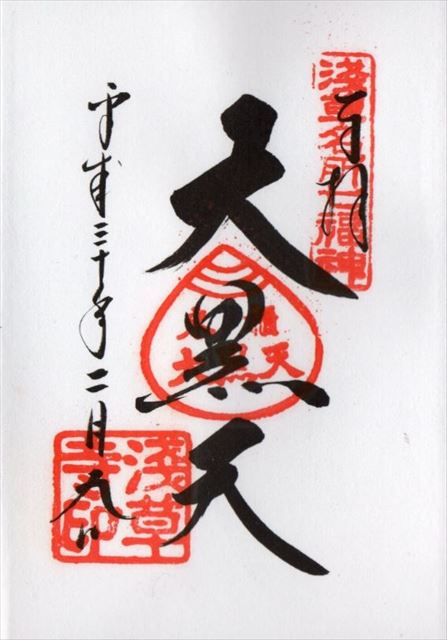 淺草名所七福神
奉拝
大黒天
平成三十年二月九日
淺草
寺印